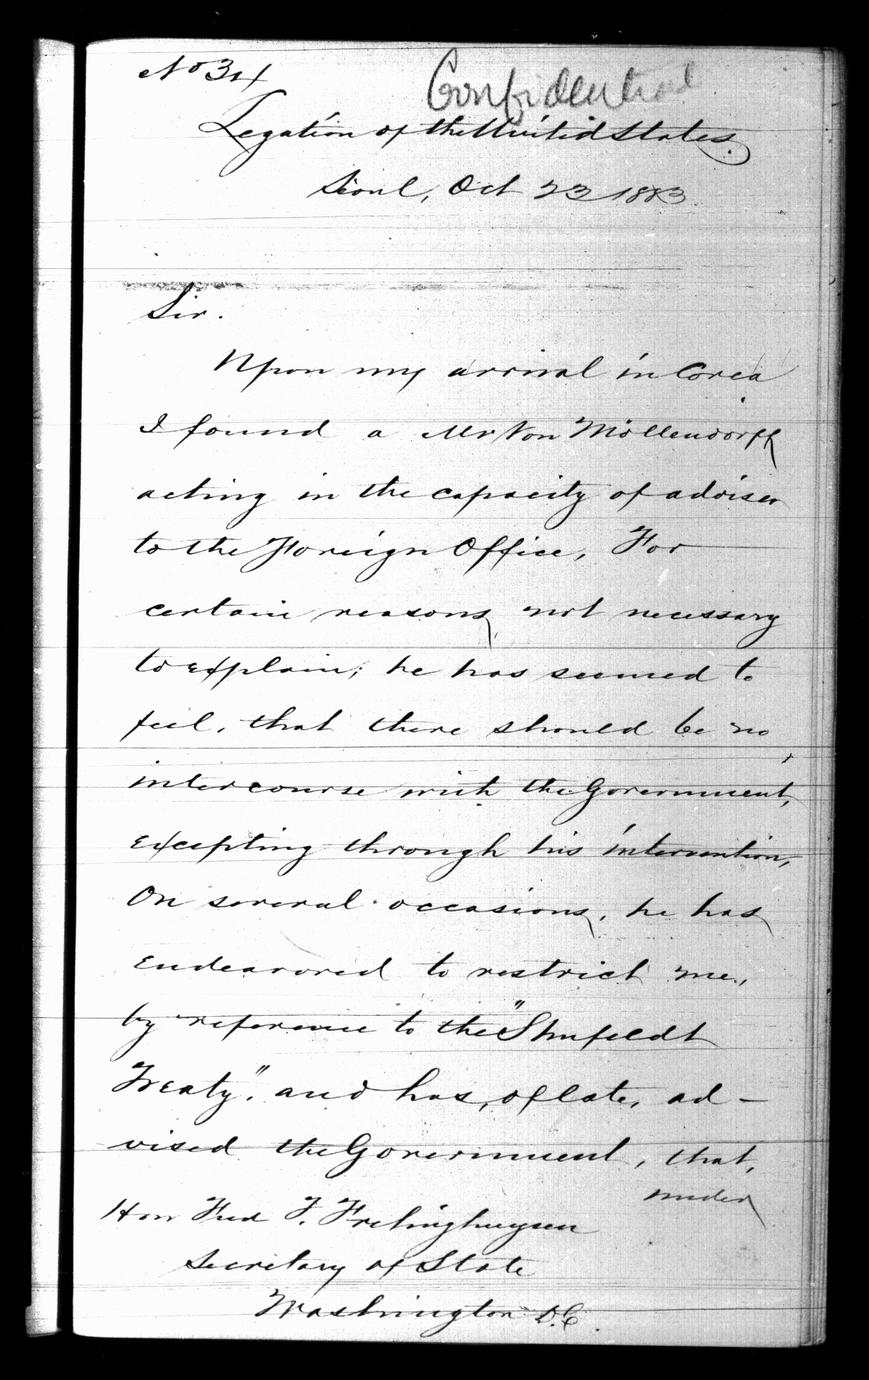 No 34
Confidential
Legation of the United States.
Sëoul, Oct 23 1883.
Sir.
Upon my arrival in Corea
I found a Mr Von Möllendorff
acting in the capacity of adviser
to the Foreign Office, For
certain reasons, not necessary
to explain, he has seemed to
feel, that there should be no
intercourse with the Government,
excepting through his intervention,
On several occasions, he has
endeavored to restrict me,
by reference to the "Shufeldt
Treaty". and has, of late, ad-
vised the Government, that,
under
Hon Fred F. Frelinghuysen
Secretary of State
Washington D.C.